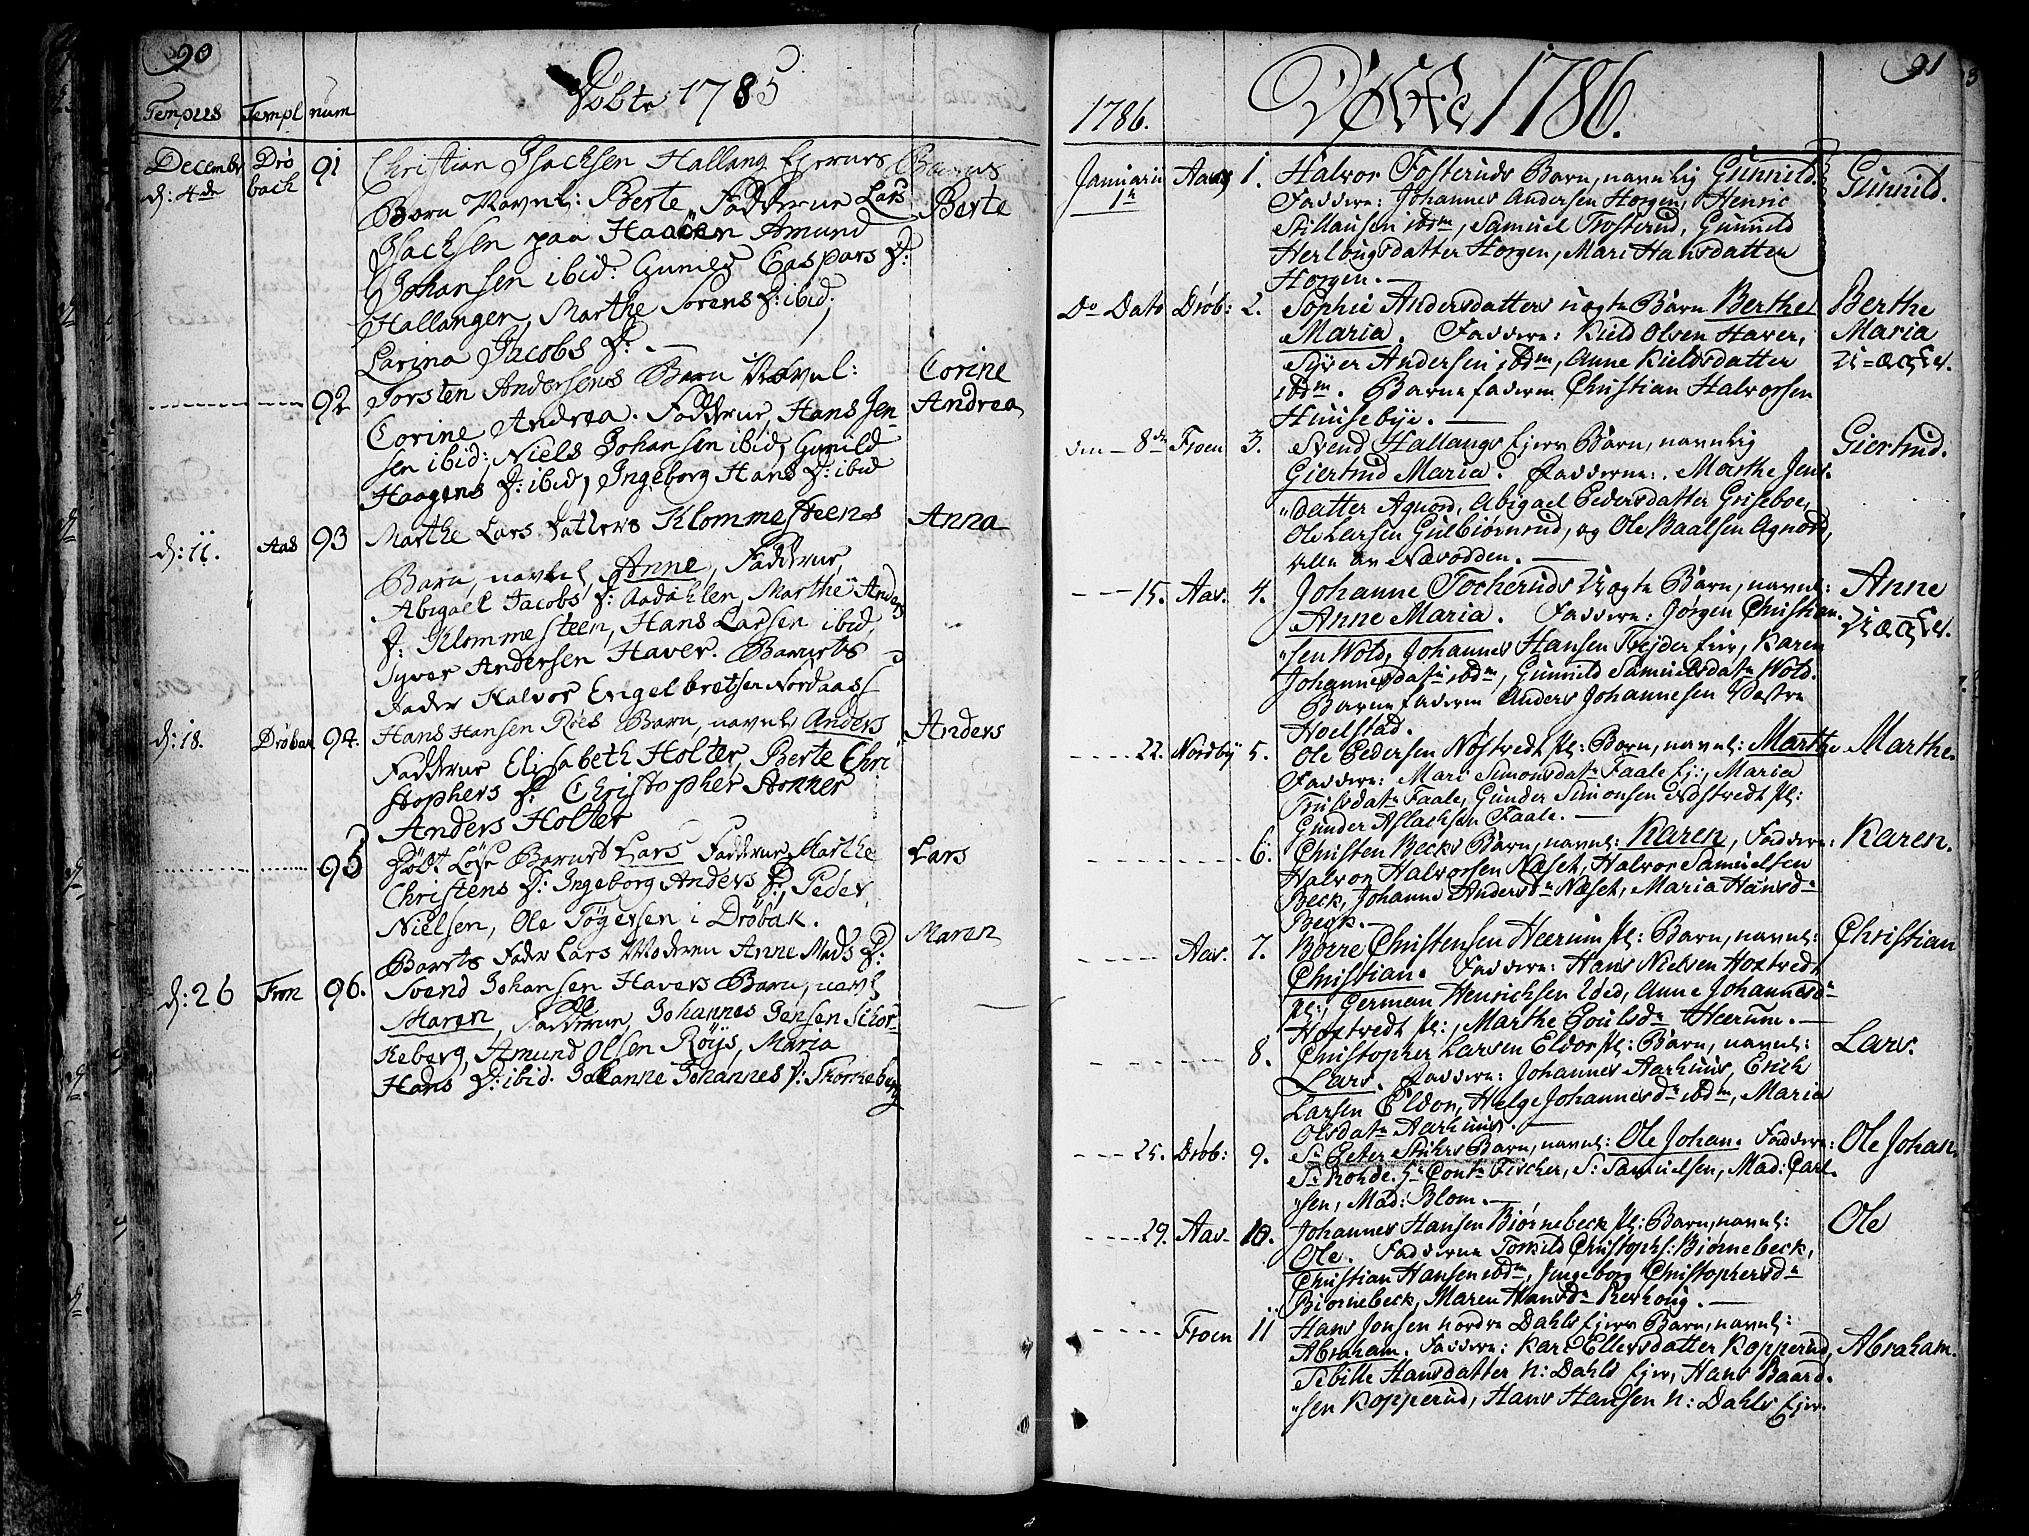 90
Døbte 1785
Tempus Templ num
December Drö 91 Christian Jsachsen Hallang Ejernes Barns
d: 4de bach Barn Navnl: Berte Fadderne Lars Berte
Jsachsen paa Haaöen Amund
Johansen ibid: Guneld Caspars D:
Hallangen, Marthe Sorens D: ibid:
Larina Jacobs D:
92 Torsten Andersens Barn Navnl: Corine
Corine Andrea. Fadderne, Hans Jen Andrea
sen ibid; Niels Johansen ibid, Gunild
Haagens D: ibid, Ingeborg Hans D: ibid
d: 11. Aas 93 Marthe Lars Datters Klommesteens Anna
Barn, navnl, Anne, Fadderne,
Abigael Jacobs D: Aadahlen, Marthe Anders
D: Klommesteen, Hans Larsen ibid,
Syver Andersen Haver. Barnets
Fader Halvor Engelbretsen Nordaas
d: 18. Dröbak 94. Hans Hansen Röes Barn, navnl, Anders Anders
Fadderne Elisabeth Holter, Berte Chri
stophers D: Christopher Honner
Anders Holter
95 Lars Fadderne Marthe Lars
Christens D: Ingeborg Anders D:, Peder
Nielsen, Ole Tögersen i Dröbak.
Fader Lars Moderen Anne Mads D:
d: 26 Fron 96. Svend Johansen Havers Barn, navnl Maren
Maren, Fadderne, Johannes Jensen Schor
keberg, Amund Olsen Röys, Maria
Hans D: ibid. Johanne Johannes D: Skorkeberg
91
1786. Døbte 1786.
Januarii Aaas 1. Halvor Fosteruds Barn, navnlig Gunnild. Gunnild.
1ste Faddere: Johannes Andersen Horgen, Henric
Stillausen ibdm, Samuel Trosterud, Gunnild
Herlougsdatter Horgen, Mari Hansdatter
Horgen.
Do Dato Dröb: 2. Sophie Andersdatters uægte Barn Berthe Berthe
Maria. Faddere: Kield Olsen Haver, Maria
Syver Andersen ibdm, Anne Kieldsdatter U-ægte.
ibdm. Barnefaderen Christian Halvorsen
Huusebye.
den 8de Froen 3. Svend Hallangs Ejers Barn, navnlig Giertrud.
Giertrud Maria. Fadderne: Marthe Jens-
datter Agnord, Abigael Pedersdatter Griseboe,
Ole Larsen Gulbiörnrud, og Ole Baalsen Agnord,
alle av Næsodden.
15. Aas. 4. Johanne Tocheruds Uægte Barn, navnl: Anne
Anne Maria. Faddere: Jörgen Christian- Uægte.
sen Wold, Johannes Hansen Eier, Karen
Johannesdatr ibdm, Gunnild Samuelsdatr Wold.
Barnefaderen Anders Johannesen Vestre
Hoelstad.
22. Nordby 5. Ole Pedersen Nöstvedt Pl: Barn, navnl: Marthe Marthe.
Faddere: Mari Simonsdatr Faale Ej:, Maria
Truulsdatr Faale, Gunder Simonsen Nöstvedt Pl:
Gunder Aslachsen Faale.
6. Christen Becks Barn, navnl: Karen, Faddere: Karen.
Halvor Halvorsen Næset, Halvor Samuelsen
Beck, Johanne Andersdr Næset, Maria Hansdr
Beck.
Aas. 7. Börre Christensen Heerum Pl: Barn, navnl: Christian
Christian. Faddere: Hans Nielsen Hoxtvedt
Pl:, German Henrichsen, Anne Johannesdr
Hoxtvedt Pl:, Marthe Poulsdr Heerum.
8. Christopher Larsen Eldor Pl: Barn, navnl: Lars.
Lars. Faddere: Johannes Aarhuus, Erich
Larsen Eldor, Helge Johannesdr ibdm, Maria
Olsdatr Aarhuus.
25. Dröb: 9. Sr Peter Stuhrs Barn, navnl: Ole Johan. Faddere: Ole Johan.
Sr Rohde. Fischer, S: Samuelsen, Mad: Carl-
sen, Mad: Blom.
29. Aas. 10. Johannes Hansen Biörnebeck Pl: Barn, navnl: Ole
Ole. Fadderne Torkild Christophs: Biörnebeck,
Christian Hansen ibdm, Jngeborg Christophersdr
Biörnebeck, Maren Hansdr
Froen 11 Hans Jonsen nordre Dahls Ejers Barn, navnl:
Abraham. Faddere: Kari Ellersdatter Kopperud, Abraham.
Sibille Hansdatter N: Dahls Ejer, Hans Baard-
sen Kopperud, Hans Hansen N: Dahls Ejer.